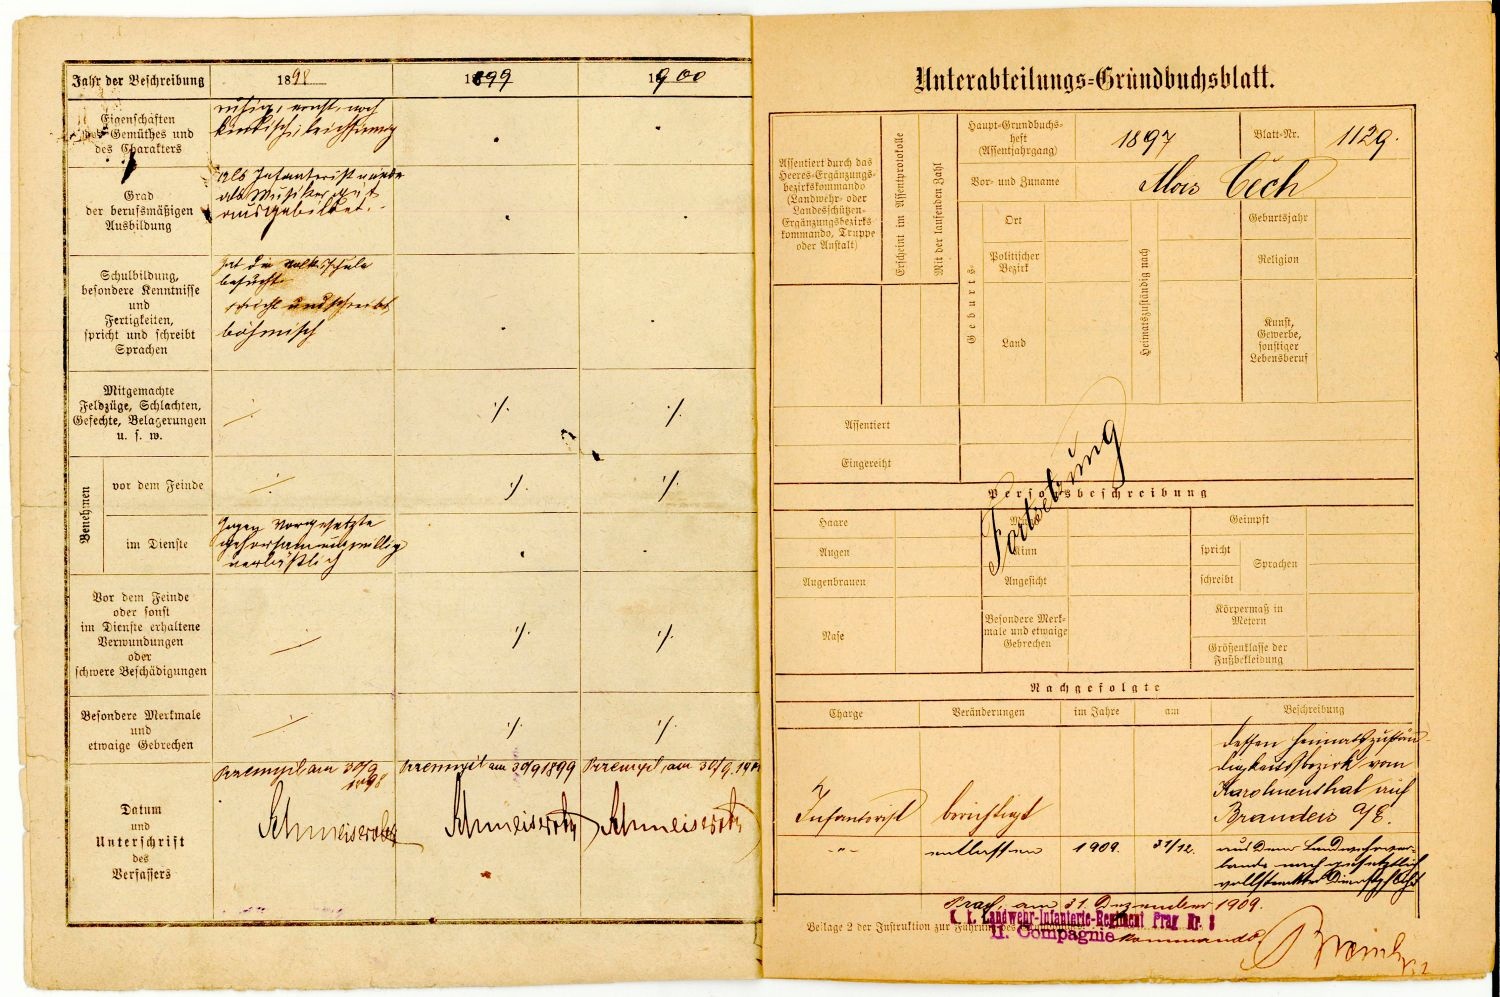 Jahr der Beschreibung 1898 1899 1900
Eigenschaften
des Gemüthes und
des Charakters
ruhig, ernst, noch
kindisch, leichtsinnig
Grad
der berufsmäßigen
Ausbildung
als Infanterist wurde
als Musiker gut
ausgebildet.
Schulbildung,
besondere Kenntnisse
und
Fertigkeiten,
spricht und schreibt
Sprachen
hat die Volksschule
besucht
spricht und schreibt
böhmisch
Mitgemachte
Feldzüge, Schlachten,
Gefechte, Belagerungen
u. s. w.
·/· ·/. ·/.
Benehmen
vor dem Feinde
·/· ·/. ·/.
im Dienste
Gegen Vorgesetzte
gehorsam und willig
verläßlich
Vor dem Feinde
oder sonst
im Dienste erhaltene
Verwundungen
oder
schwere Beschädigungen
·/· ·/. ·/.
Besondere Merkmale
und
etwaige Gebrechen
·/· ·/. ·/.
Datum
und
Unterschrift
des
Verfassers
Przemysl am 30/9
1898
Przemysl am 30/9 1899
Przemysl, am 30/9. 1900
Unterabteilungs-Grundbuchsblatt.
Assentiert durch das
Heeres-Ergänzungs-
bezirkskommando
(Landwehr- oder
Landesschützen-
Ergänzungsbezirks
kommando, Truppe
oder Anstalt)
Erscheint im Assentprotokolle
Mit der laufenden Zahl
Haupt-Grundbuchs-
heft
(Assentjahrgang)
1897
Blatt-Nr.
1129.
Vor- und Zuname
Alois Čech
Geburts-
Ort
Politischer
Bezirk
Land
Heimatszuständig nach
Geburtsjahr
Religion
Kunst,
Gewerbe,
sonstiger
Lebensberuf
Assentiert
Eingereiht
Fortsetzung
Personsbeschreibung
Haare
Augen
Augenbrauen
Nase
Mund
Kinn
Angesicht
Besondere Merk-
male und etwaige
Gebrechen
Geimpft
spricht
schreibt
Sprachen
Körpermaß in
Metern
Größenklasse der
Fußbekleidung
Nachgefolgte
Charge Veränderungen im Jahre am Beschreibung
Infanterist berichtigt
dessen Heimatszustän-
digkeitsbezirk vom
Karolinenthal auf
Brandeis a/E.
-"- entlassen 1909. 31/12.
aus dem Landwehrver-
bande nach gesetzlich
vollstreckter Dienstpflicht
Prag, am 31. Dezember 1909.
K. k. Landwehr-Infanterie-Regiment Prag Nr. 8
11. Compagnie kommando
Beilage 2 der Instruktion zur Führung des